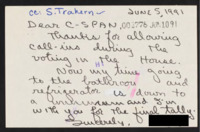 cc: S. Trahern
JUNE 5, 1991
Dear C-SPAN, 001776 JUN 1091
Thanks for allowing
call-ins during the
voting in the House.
Now my time going
to the bathroom and
refrigerator is down to
a minimum and I'm
with you for the final tally.
Sincerely,